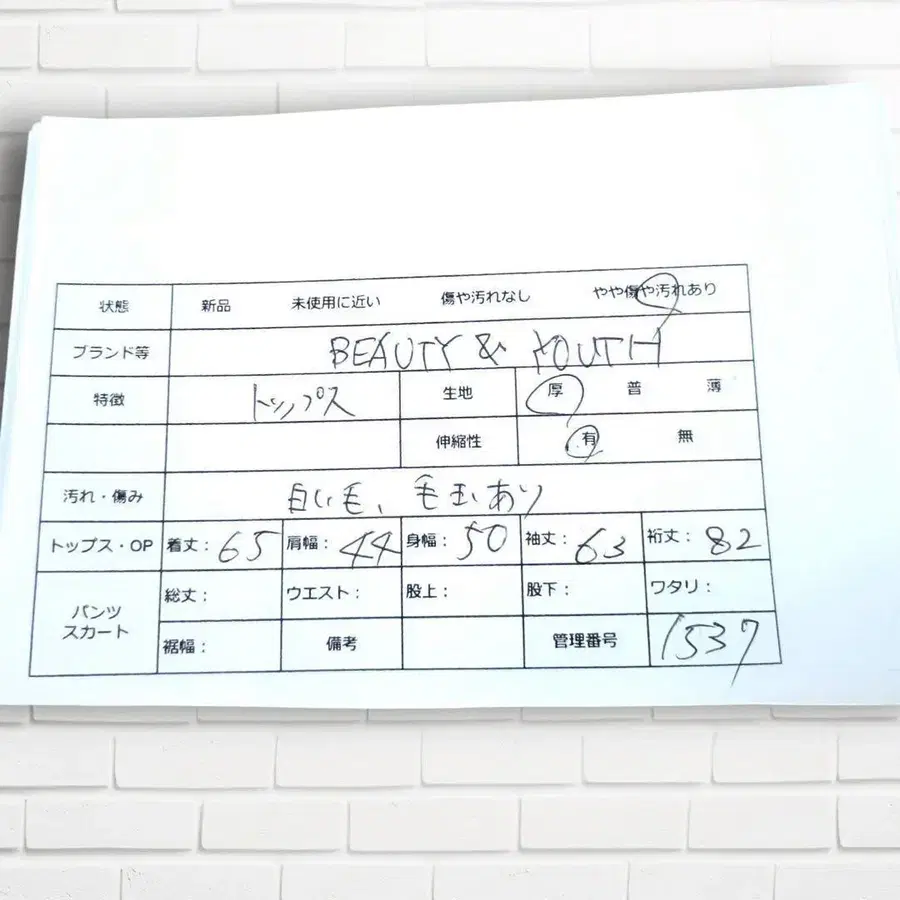 状態 新品 未使用に近い 傷や汚れなし やや傷や汚れあり
ブランド等 BEAUTY & YOUTH
特徴 トップス 生地 厚 普 薄
伸縮性 有 無
汚れ・傷み 白い毛、毛玉あり
トップス・OP 着丈: 65 肩幅: 44 身幅: 50 袖丈: 63 裄丈: 82
パンツ スカート 総丈: ウエスト: 股上: 股下: ワタリ:
裾幅: 備考 管理番号 1537